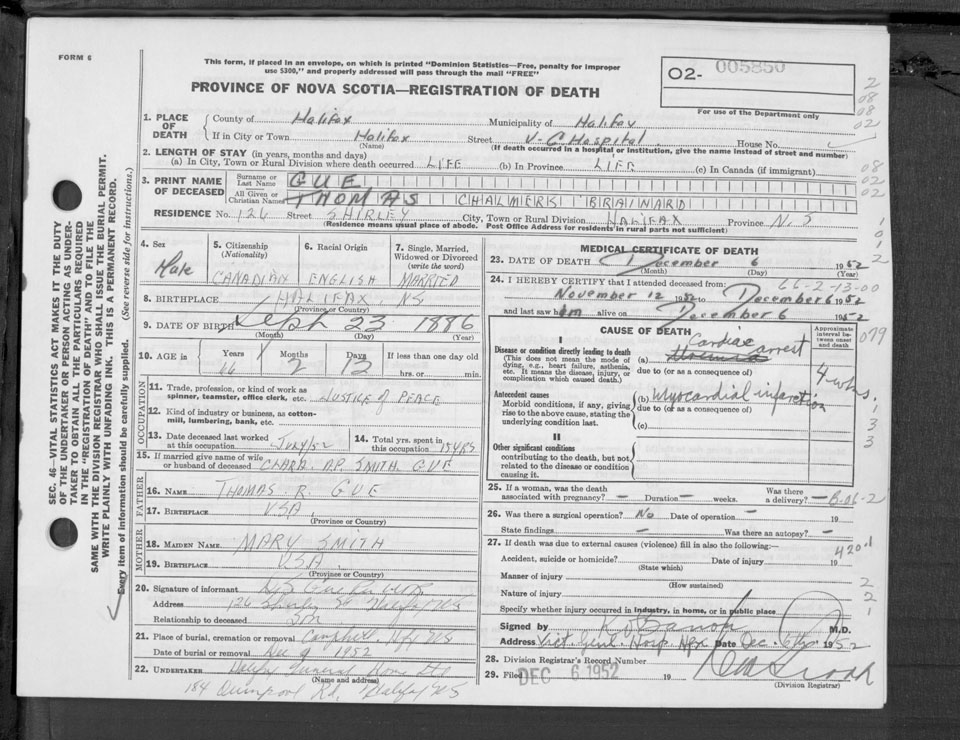 FORM 6
This form, if placed in an envelope, on which is printed "Dominion Statistics—Free, penalty for improper
use $300," and properly addressed will pass through the mail "FREE"
PROVINCE OF NOVA SCOTIA—REGISTRATION OF DEATH
02- 005850
For use of the Department only
1. PLACE OF DEATH
County of Halifax Municipality of Halifax
If in City or Town Halifax Street V-G Hospital House No.
(Name) (If death occurred in a hospital or institution, give the name instead of street and number)
2. LENGTH OF STAY (in years, months and days)
(a) In City, Town or Rural Division where death occurred LIFE (b) In Province LIFE (c) In Canada (if immigrant)
3. PRINT NAME OF DECEASED
Surname or Last Name GUE
All Given or Christian Names THOMAS CHALMERS BRAINARD
RESIDENCE No. 126 Street SHIRLEY City, Town or Rural Division HALIFAX Province N.S
(Residence means usual place of abode. Post Office Address for residents in rural parts not sufficient)
4. Sex
Male
5. Citizenship
(Nationality)
CANADIAN
6. Racial Origin
ENGLISH
7. Single, Married, Widowed or Divorced
(write the word)
MARRIED
8. BIRTHPLACE HALIFAX, NS
(Province or Country)
9. DATE OF BIRTH Sept 23 1886
(Month) (Day) (Year)
10. AGE in
Years 66 Months 2 Days 12 If less than one day old
hrs. or min.
OCCUPATION
11. Trade, profession, or kind of work as
spinner, teamster, office clerk, etc. JUSTICE of PEACE
12. Kind of industry or business, as cotton-
mill, lumbering, bank, etc.
13. Date deceased last worked
at this occupation July/52
14. Total yrs. spent in
this occupation 15 YRS
15. If married give name of wife
or husband of deceased CLARA D.P. SMITH GUE
FATHER
16. NAME THOMAS R. GUE
17. BIRTHPLACE USA
(Province or Country)
MOTHER
18. MAIDEN NAME MARY SMITH
19. BIRTHPLACE USA
(Province or Country)
20. Signature of informant
Address 126 Shirley St Halifax NS
Relationship to deceased Son
21. Place of burial, cremation or removal Camphill, Hfx NS
Date of burial or removal Dec 9 1952
22. UNDERTAKER Funeral Home Ltd
(Name and address)
184 Quinpool Rd. Halifax NS
MEDICAL CERTIFICATE OF DEATH
23. DATE OF DEATH December 6 1952
(Month) (Day) (Year)
24. I HEREBY CERTIFY that I attended deceased from: 66-2-13-00
November 12 1952 to December 6 1952
and last saw him alive on December 6 1952
CAUSE OF DEATH
Approximate interval be-tween onset and death
I
Disease or condition directly leading to death
(This does not mean the mode of dying, e.g., heart failure, asthenia, etc. It means the disease, injury, or complication which caused death.)
(a) Cardiac arrest
due to (or as a consequence of)
Antecedent causes
Morbid conditions, if any, giving rise to the above cause, stating the underlying condition last.
(b) Myocardial infarction 4 wks.
due to (or as a consequence of)
(c)
II
Other significant conditions
contributing to the death, but not related to the disease or condition causing it.
25. If a woman, was the death
associated with pregnancy? — Duration — weeks. Was there a delivery? — B.06-2
26. Was there a surgical operation? No Date of operation — 19
State findings — Was there an autopsy? —
27. If death was due to external causes (violence) fill in also the following:— 420.1
Accident, suicide or homicide? Date of injury 19
(State which)
Manner of injury
(How sustained)
Nature of injury
Specify whether injury occurred in industry, in home, or in public place
Signed by M.D.
Address Vict. Genl. Hosp. Hfx Date Dec. 6th 1952
28. Division Registrar's Record Number
29. Filed DEC 6 1952 19
(Division Registrar)
2
08
08
02
08
02
02
1
0
1
2
079
1
3
3
2
2
1
SEC. 46—VITAL STATISTICS ACT MAKES IT THE DUTY
OF THE UNDERTAKER OR PERSON ACTING AS UNDER-
TAKER TO OBTAIN ALL THE PARTICULARS REQUIRED
IN THE "REGISTRATION OF DEATH" AND TO FILE THE
SAME WITH THE DIVISION REGISTRAR WHO SHALL ISSUE THE BURIAL PERMIT.
WRITE PLAINLY WITH UNFADING INK. THIS IS A PERMANENT RECORD.
Every item of information should be carefully supplied. (See reverse side for instructions.)